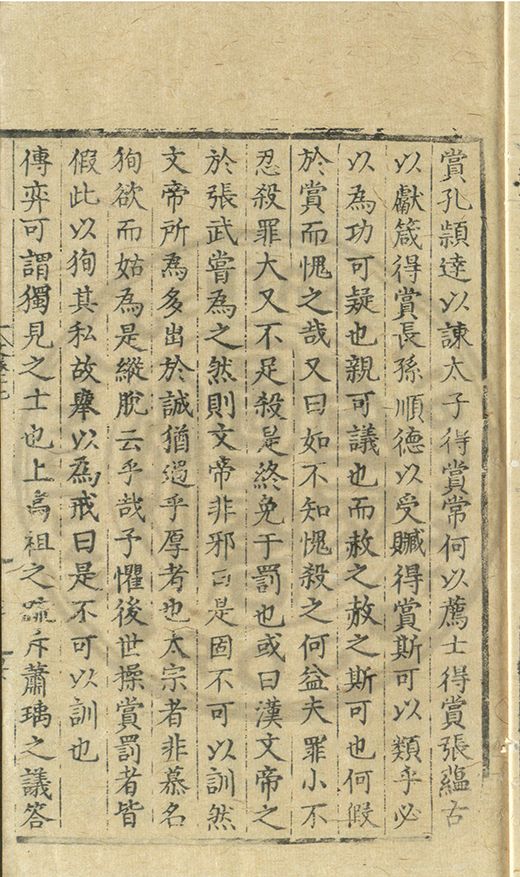 賞孔頴逹以諫太子得賞常何以薦士得賞張蘊古
以獻箴得賞長孫順德以受贓得賞斯可以類乎必
以為功可疑也親可議也而赦之赦之斯可也何假
於賞而愧之哉又曰如不知愧殺之何益夫罪小不
忍殺罪大又不足殺是終免于罰也或曰漢文帝之
於張武嘗為之然則文帝非邪曰是固不可以訓然
文帝所為多出於誠猶過乎厚者也太宗者非慕名
狥欲而姑為是縱脫云乎哉予懼後世操賞罰者皆
假此以狥其私故舉以為戒曰是不可以訓也
傅弈可謂獨見之士也上高祖之疏斥蕭瑀之議答